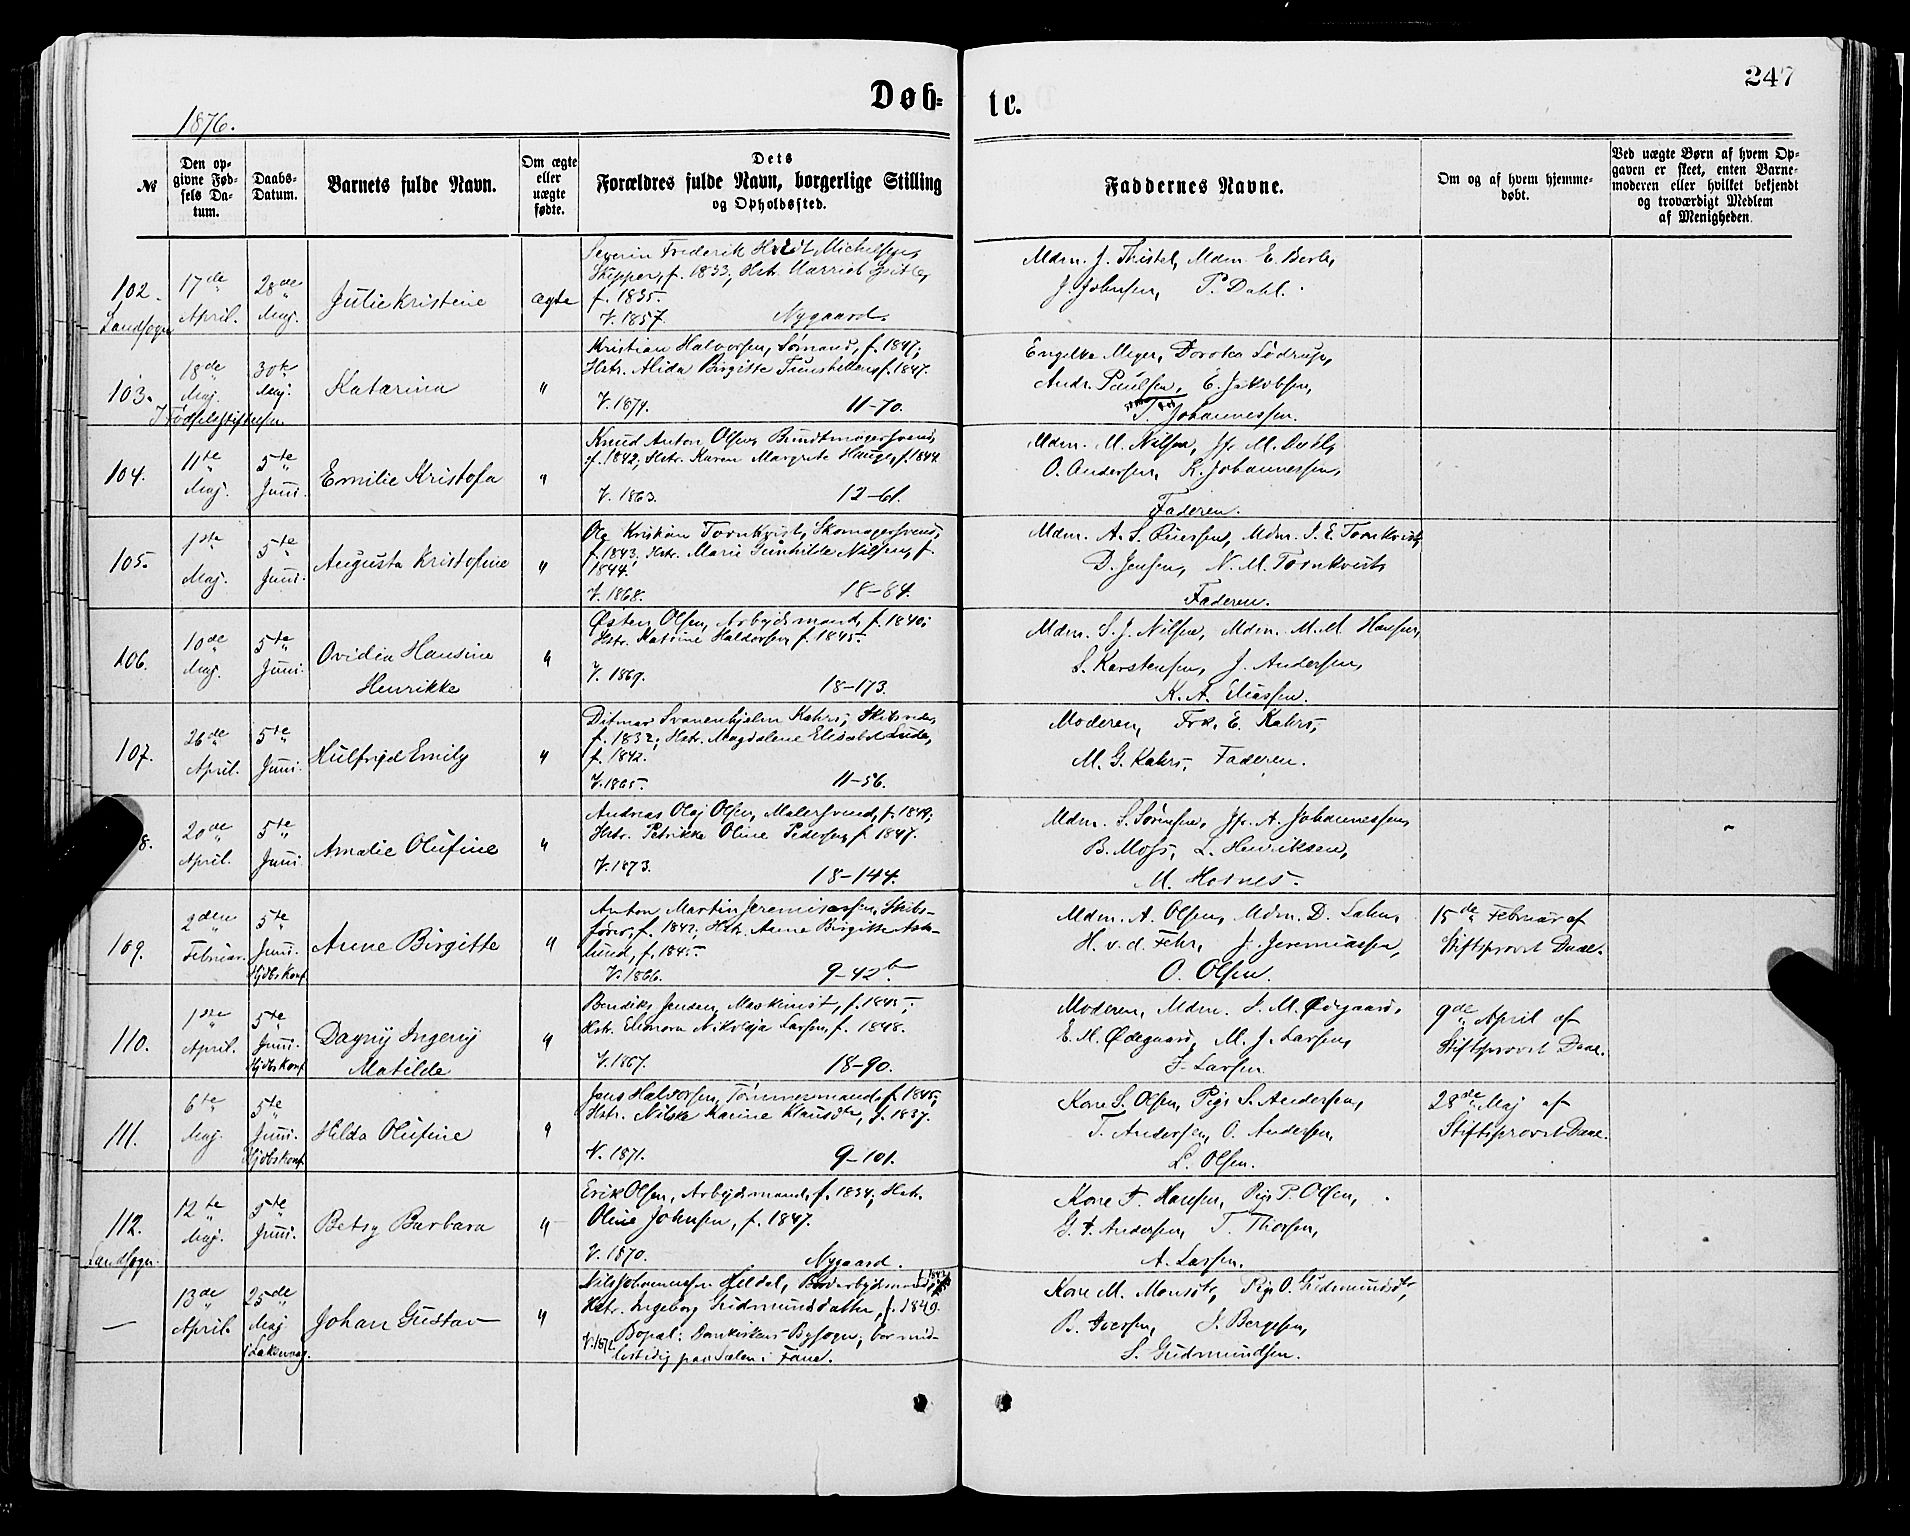 247
Døb-
te.
1876.
№
Den op-
givne Fød-
sels Da-
tum.
Daabs-
Datum.
Barnets fulde Navn.
Om ægte
eller
uægte
fødte.
Dets
Forældres fulde Navn, borgerlige Stilling
og Opholdssted.
Faddernes Navne.
Om og af hvem hjemme-
døbt.
Ved uægte Børn af hvem Op-
gaven er skeet, enten Barne-
moderen eller hvilket bekjendt
og troværdigt Medlem
af Menigheden.
102.
Landsogn
17de
April.
28de
Maj.
Julie Kristine
ægte
Severin Frederik Michelsen,
Skipper, f. 1833; Hstr. Harriet
f. 1835.
V. 1857. Nygaard.
Mdm. J. Thistel, Mdm. E. Berle,
J. Johnsen, P. Dahl.
103.
I Fødselsstiftelsen
18de
Maj.
30te
Maj.
Katarina
"
Kristian Halvorsen, Sømand, f. 1847;
Hstr. Alida Birgitte f. 1847.
V. 1874. 11-70.
Engelke Meyer, Dorotea Lødrup,
Andr. Paulsen, E. Jakobsen,
T. Johannessen.
104.
11te
Maj.
5te
Juni.
Emilie Kristofa
"
Knud Anton Olsen, Bundtmagersvend,
f. 1842; Hstr. Karen Margrete Hauge, f. 1844.
V. 1863. 12-61.
Mdm. M. Nilsen, Jfr. M.
O. Andersen, K. Johannessen,
Faderen.
105.
1ste
Maj.
5te
Juni.
Augusta Kristofine
"
Ole Kristian Tornkvist, Skomagersvend,
f. 1843; Hstr. Marie Gunhilde Nilsen, f.
1844.
V. 1868. 18-84.
Mdm. A. S. Mdm. I. E. Tornkvist,
D. Jensen, N. M. Tornkvist,
Faderen.
106.
10de
Maj.
5te
Juni.
Ovidia Hansine
Henrikke
"
Østen Olsen, Arbejdsmand, f. 1840;
Hstr. Katrine Haldorsen, f. 1845.
V. 1869. 18-173.
Mdm. S. J. Nilsen, Mdm. M. M. Hansen,
S. Karstensen, J. Andersen,
K. A. Eliassen.
107.
26de
April.
5te
Juni.
Hulfrijd Emily
"
Ditmar Svanenhjelm Kahrs,
f. 1832; Hstr. Magdalene Elisabet
f. 1842.
V. 1865. 11-56.
Moderen, Frk. E. Kahrs,
M. G. Kahrs, Faderen.
8.
20de
April.
5te
Juni.
Amalie Olufine
"
Andreas Olaj Olsen, Malersvend, f. 1849;
Hstr. Petrikke Oline Pedersen, f. 1847.
V. 1873. 18-144.
Mdm. S. Sørensen, Jfr. A. Johannessen,
B. Moss, L. Henriksen,
M. Hornes.
109.
2den
Februar.
5te
Juni.
Hjdbs konf.
Anne Birgitte
"
Anton Martin Jeremiassen, Skibs-
fører, f. 1842; Hstr. Anne Birgitte Ask-
lund, f. 1845.
V. 1866. 9-42b
Mdm. A. Olsen, Mdm. D. Lahn,
H. v. d. Fehr, J. Jeremiassen,
O. Olsen.
15de Februar af
Stiftsprovst Daae.
110.
1ste
April.
5te
Juni.
Hjdbs konf.
Dagny Ingeny
Matilde
"
Bendik Jensen, Maskinist, f. 1845;
Hstr. Elenora Nikolaja Larsen, f. 1848.
V. 1867. 18-90.
Moderen, Mdm. J. M. Ødegaard,
E. M. Ødegaard, M. J. Larsen,
F. Larsen
9de April af
Stiftsprovst Daae.
111.
6te
Maj.
5te
Juni.
Hjdbs konf.
Hilda Olufine
"
Jens Halvorsen, Tømmermand, f. 1845;
Hstr. Nilska Karine Klausdtr, f. 1837.
V. 1871. 9-101.
Kone S. Olsen, Pige S. Andersen,
T. Andersen, O. Andersen,
L. Olsen.
28de Maj af
Stiftsprovst Daae.
112.
Landsogn.
12te
Maj.
5te
Juni.
Betsy Barbara
"
Erik Olsen, Arbejdsmand, f. 1834; Hstr.
Oline Johnsen, f. 1847.
V. 1870. Nygaard.
Kone F. Hansen, Pige P. Olsen,
G. A. Andersen, T. Thorsen,
A. Larsen.
—
13de
April.
25de
Maj
i Laksevaag.
Johan Gustav
"
Nils Johannessen Heldal, f. 1842
Hstr. Ingeborg Gudmundsdatter, f. 1849.
V. 1872. Bopæl: Domkirkens Bysogn; bor mid-
lertidig paa Sælen i Fane.
Kone M. Monsdtr, Pige O. Gudmundsdtr,
B. Iversen, J. Bergesen,
S. Gudmundsen.